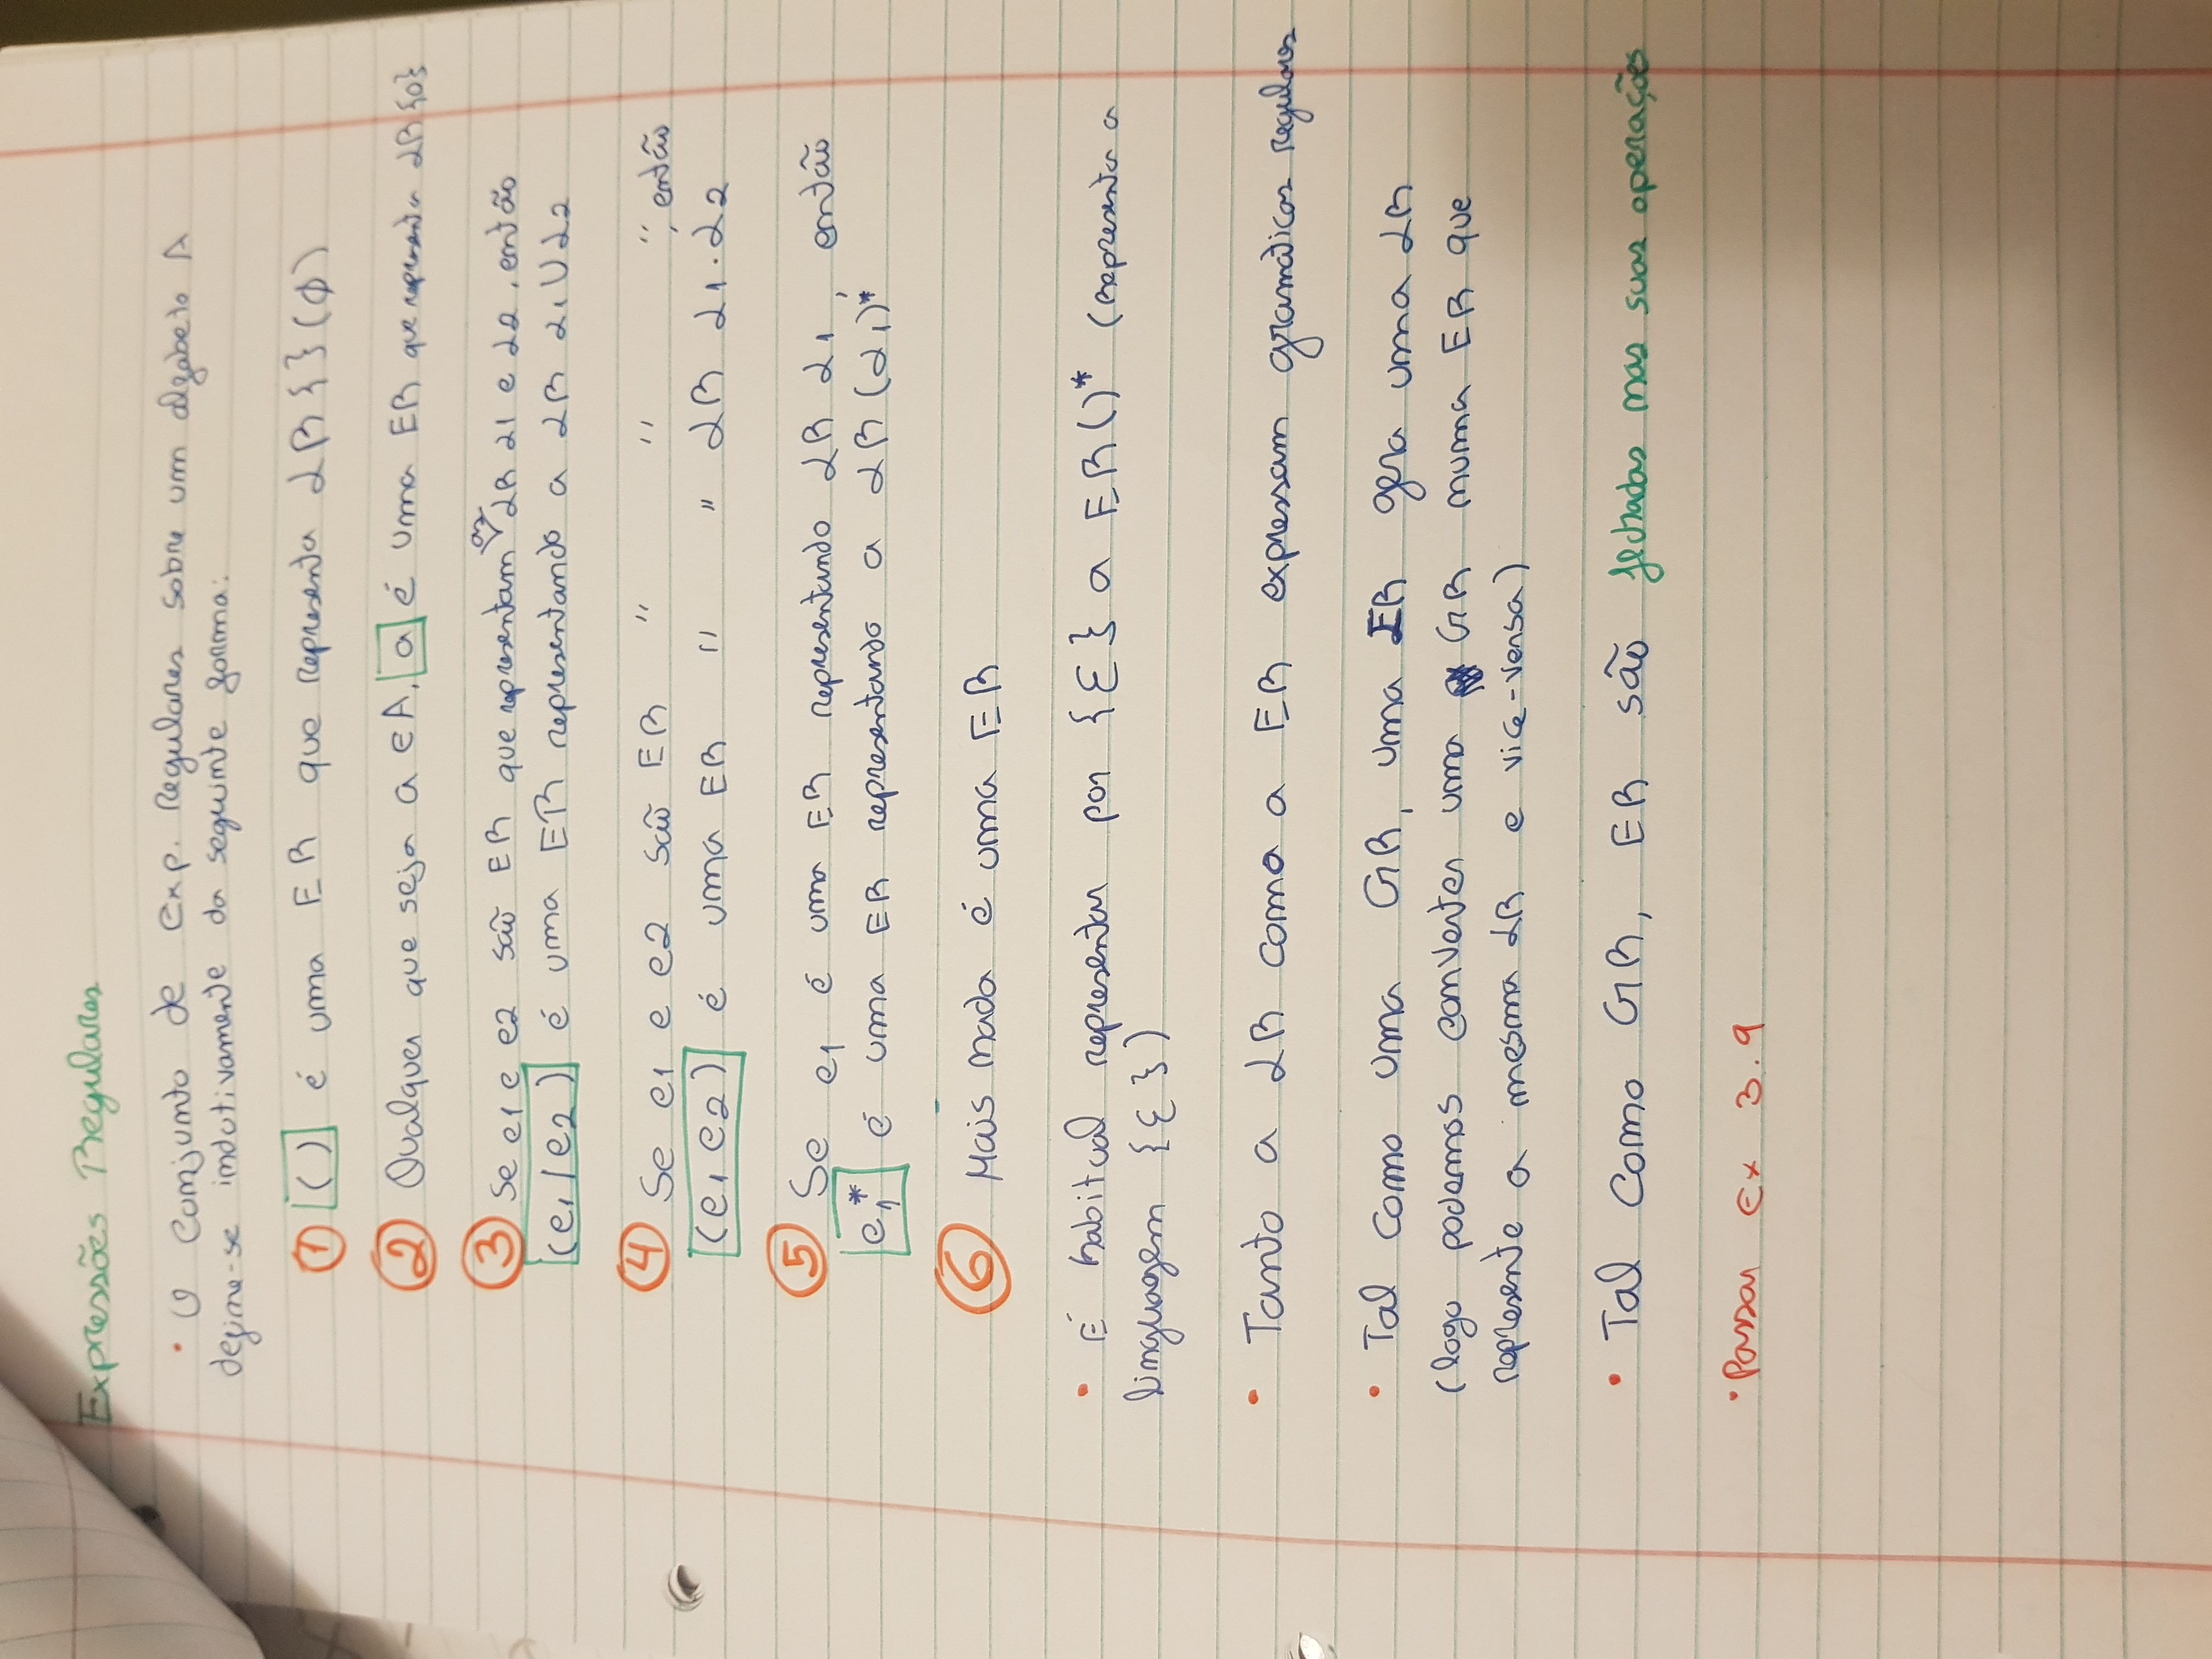 Expressões Regulares
• O conjunto de exp. Regulares sobre um alfabeto A
define-se indutivamente da seguinte forma:
① () é uma ER que representa LR {} (∅)
② Qualquer que seja a ∈ A, a é uma ER que representa LR {a}
③ Se e1 e e2 são ER que representam as LR L1 e L2, então
(e1|e2) é uma ER representando a LR L1 ∪ L2
④ Se e1 e e2 são ER " " ", então
(e1 e2) é uma ER " " LR L1 . L2
⑤ Se e1 é uma ER representando LR L1, então
e1* é uma ER representando a LR (L1)*
⑥ Mais nada é uma ER
• É habitual representar por {ε} a ER ()* (representa a
linguagem {ε})
• Tanto a LR como a ER expressam gramáticas regulares
• Tal como uma GR, uma ER gera uma LR
(logo podemos converter uma GR numa ER que
represente a mesma LR e vice-versa)
• Tal como GR, ER são fechadas nas suas operações
• Passar Ex 3.9